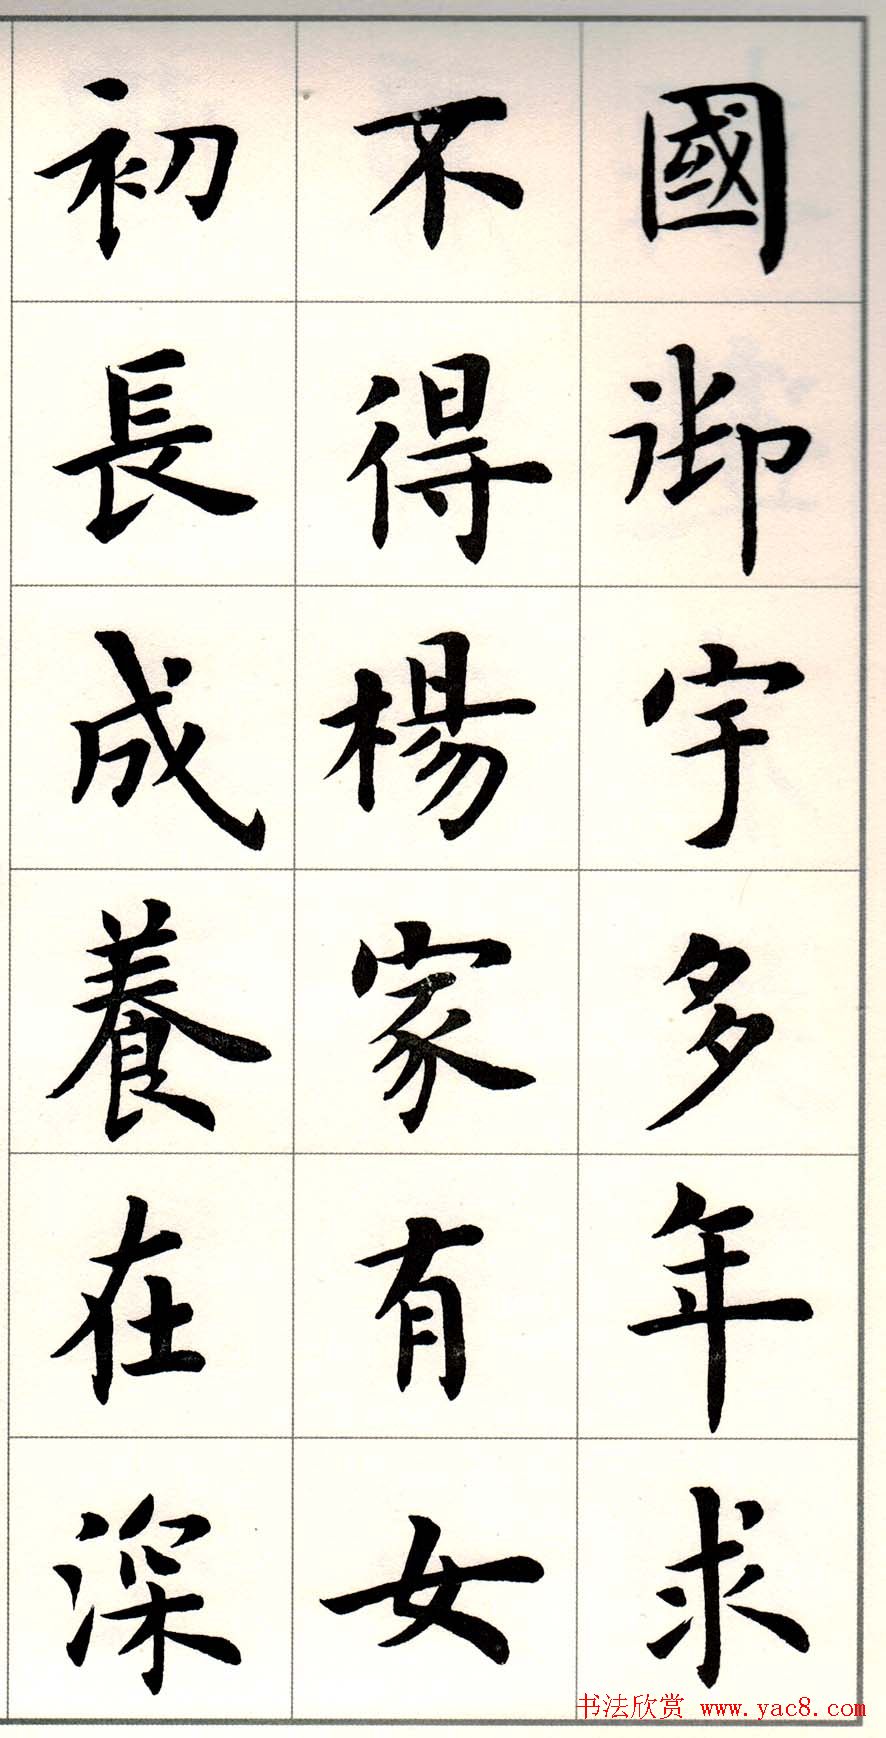 國御宇多年求
不得楊家有女
初長成養在深
书法欣赏 www.yac8.com